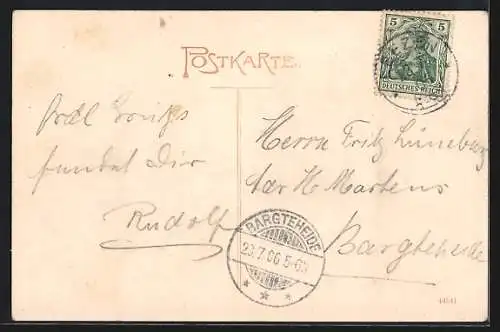 POSTKARTE.
5 5
DEUTSCHES REICH
sendet Dir
Rudolf
Herrn Fritz Lüneburg
H. Martens
Bargteheide
BARGTEHEIDE
23.7.06 5-6N